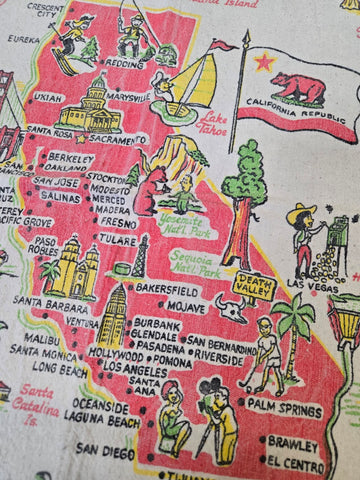 Island
CRESCENT
CITY
EUREKA
REDDING
CALIFORNIA REPUBLIC
UKIAH
MARYSVILLE
Lake
Tahoe
SANTA ROSA
SACRAMENTO
SAN
FRANCISCO
BERKELEY
OAKLAND
SAN JOSE
SALINAS
STOCKTON
MODESTO
MERCED
MADERA
FRESNO
Yosemite
Nat'l. Park
PACIFIC GROVE
PASO
ROBLES
TULARE
Sequoia
Nat'l. Park
DEATH
VALLEY
LAS VEGAS
BAKERSFIELD
MOJAVE
SANTA BARBARA
VENTURA
BURBANK
GLENDALE
PASADENA
SAN BERNARDINO
RIVERSIDE
MALIBU
SANTA MONICA
LONG BEACH
HOLLYWOOD
POMONA
LOS ANGELES
SANTA
ANA
Santa
Catalina
Is.
OCEANSIDE
LAGUNA BEACH
PALM SPRINGS
SAN DIEGO
BRAWLEY
EL CENTRO